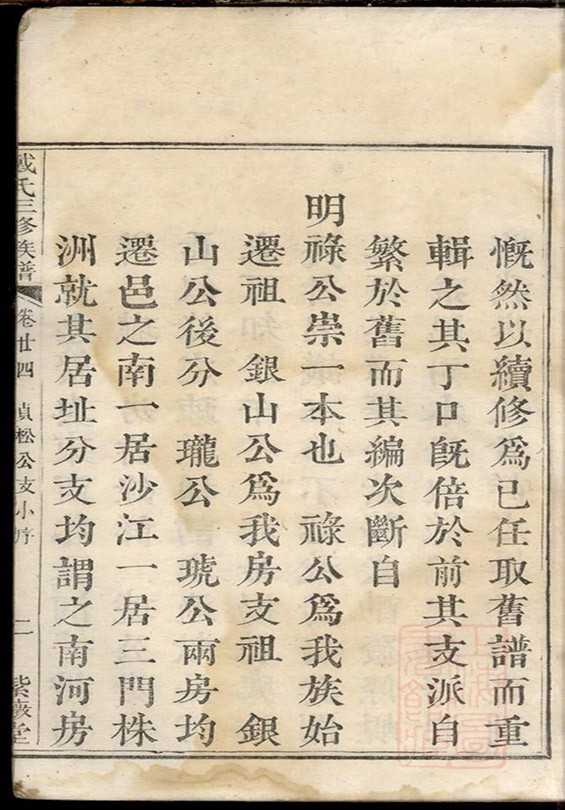 慨然以續修爲已任取舊譜而重
輯之其丁口旣倍於前其支派自
繁於舊而其編次斷自
明祿公崇一本也 祿公爲我族始
遷祖 銀山公爲我房支祖 銀
山公後分 瓏公 琥公兩房均
遷邑之南一居沙江一居三門株
洲就其居址分支均謂之南河房
戴氏三修族譜 卷廿四 貞松公支小序 二 紫薇堂